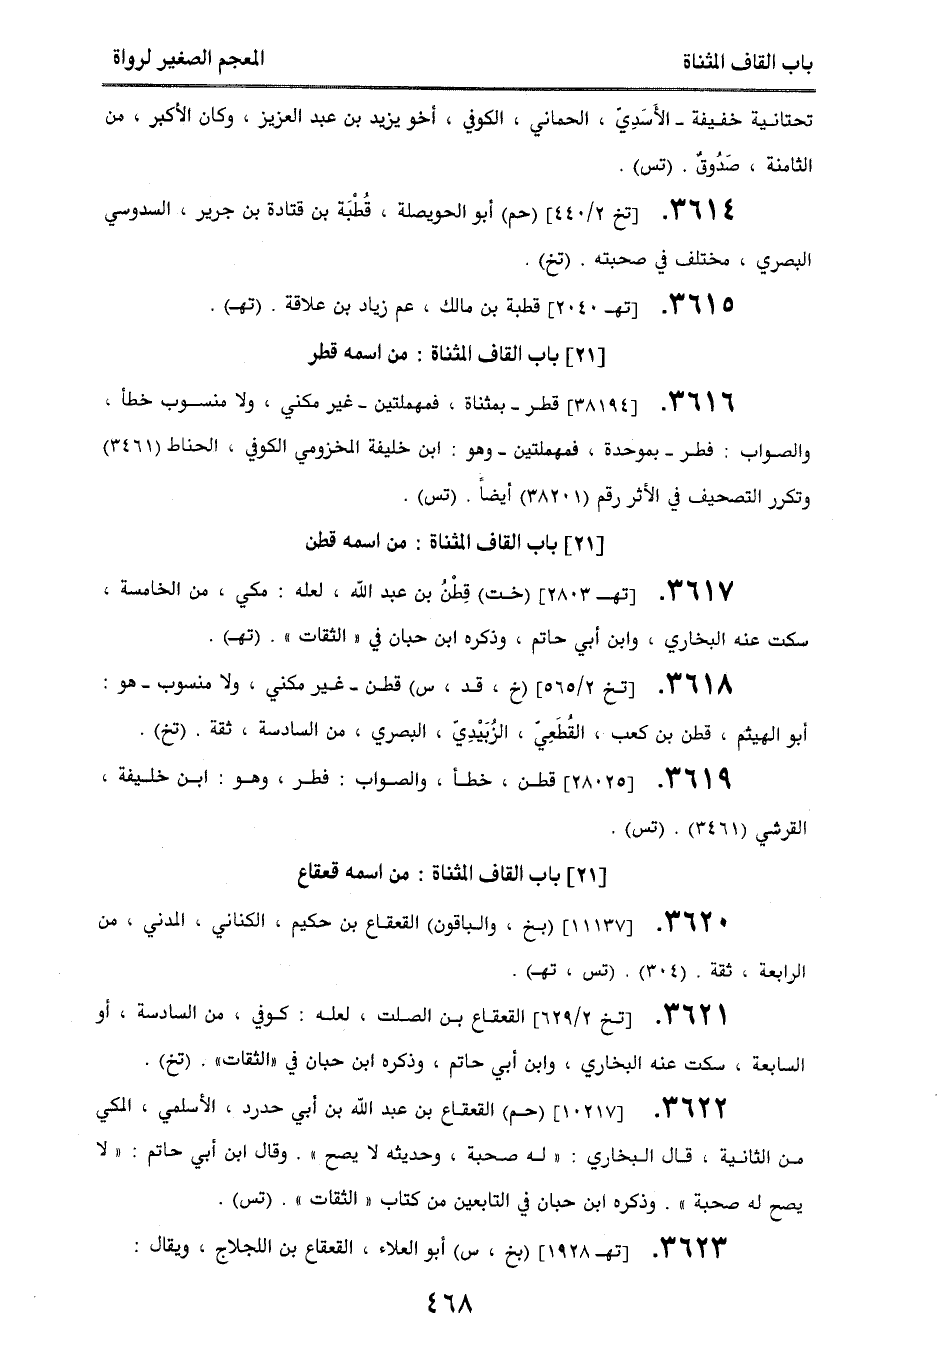 باب القاف المثناة المعجم الصغير لرواة
تحتانية خفيفة ـ الأَسَدِيّ ، الحماني ، الكوفي ، أخو يزيد بن عبد العزيز ، وكان الأكبر ، من
الثامنة ، صَدُوقٌ . (تس) .
٣٦١٤. [تخ ٤٤٠/٢] (حم) أبو الحويصلة ، قُطْبَة بن قتادة بن جرير ، السدوسي
البصري ، مختلف في صحبته . (تخ) .
٣٦١٥. [تهـ ٢٠٤٠] قطبة بن مالك ، عم زياد بن علاقة . (تهـ) .
[٢١] باب القاف المثناة : من اسمه قطر
٣٦١٦. [٣٨١٩٤] قطر ـ بمثناة ، فمهملتين ـ غير مكني ، ولا منسوب خطأ ،
والصواب : فطر ـ بموحدة ، فمهملتين ـ وهو : ابن خليفة المخزومي الكوفي ، الحناط (٣٤٦١)
وتكرر التصحيف في الأثر رقم (٣٨٢٠١) أيضاً . (تس) .
[٢١] باب القاف المثناة : من اسمه قطن
٣٦١٧. [تهـ ٢٨٠٣] (خت) قِطْنُ بن عبد الله ، لعله : مكي ، من الخامسة ،
سكت عنه البخاري ، وابن أبي حاتم ، وذكره ابن حبان في « الثقات » . (تهـ) .
٣٦١٨. [تخ ٥٦٥/٢] (خ ، قد ، س) قطن ـ غير مكني ، ولا منسوب ـ هو :
أبو الهيثم ، قطن بن كعب ، القُطَعِيّ ، الزُبَيْدِيّ ، البصري ، من السادسة ، ثقة . (تخ) .
٣٦١٩. [٢٨٠٢٥] قطن ، خطأ ، والصواب : فطر ، وهو : ابن خليفة ،
القرشي (٣٤٦١) . (تس) .
[٢١] باب القاف المثناة : من اسمه قعقاع
٣٦٢٠. [١١١٣٧] (بخ ، والباقون) القعقاع بن حكيم ، الكناني ، المدني ، من
الرابعة ، ثقة . (٣٠٤) . (تس ، تهـ) .
٣٦٢١. [تخ ٦٢٩/٢] القعقاع بن الصلت ، لعله : كوفي ، من السادسة ، أو
السابعة ، سكت عنه البخاري ، وابن أبي حاتم ، وذكره ابن حبان في «الثقات» . (تخ) .
٣٦٢٢. [١٠٢١٧] (حم) القعقاع بن عبد الله بن أبي حدرد ، الأسلمي ، المكي
من الثانية ، قال البخاري : « له صحبة ، وحديثه لا يصح » . وقال ابن أبي حاتم : « لا
يصح له صحبة » . وذكره ابن حبان في التابعين من كتاب « الثقات » . (تس) .
٣٦٢٣. [تهـ ١٩٢٨] (بخ ، س) أبو العلاء ، القعقاع بن اللجلاج ، ويقال :
٤٦٨